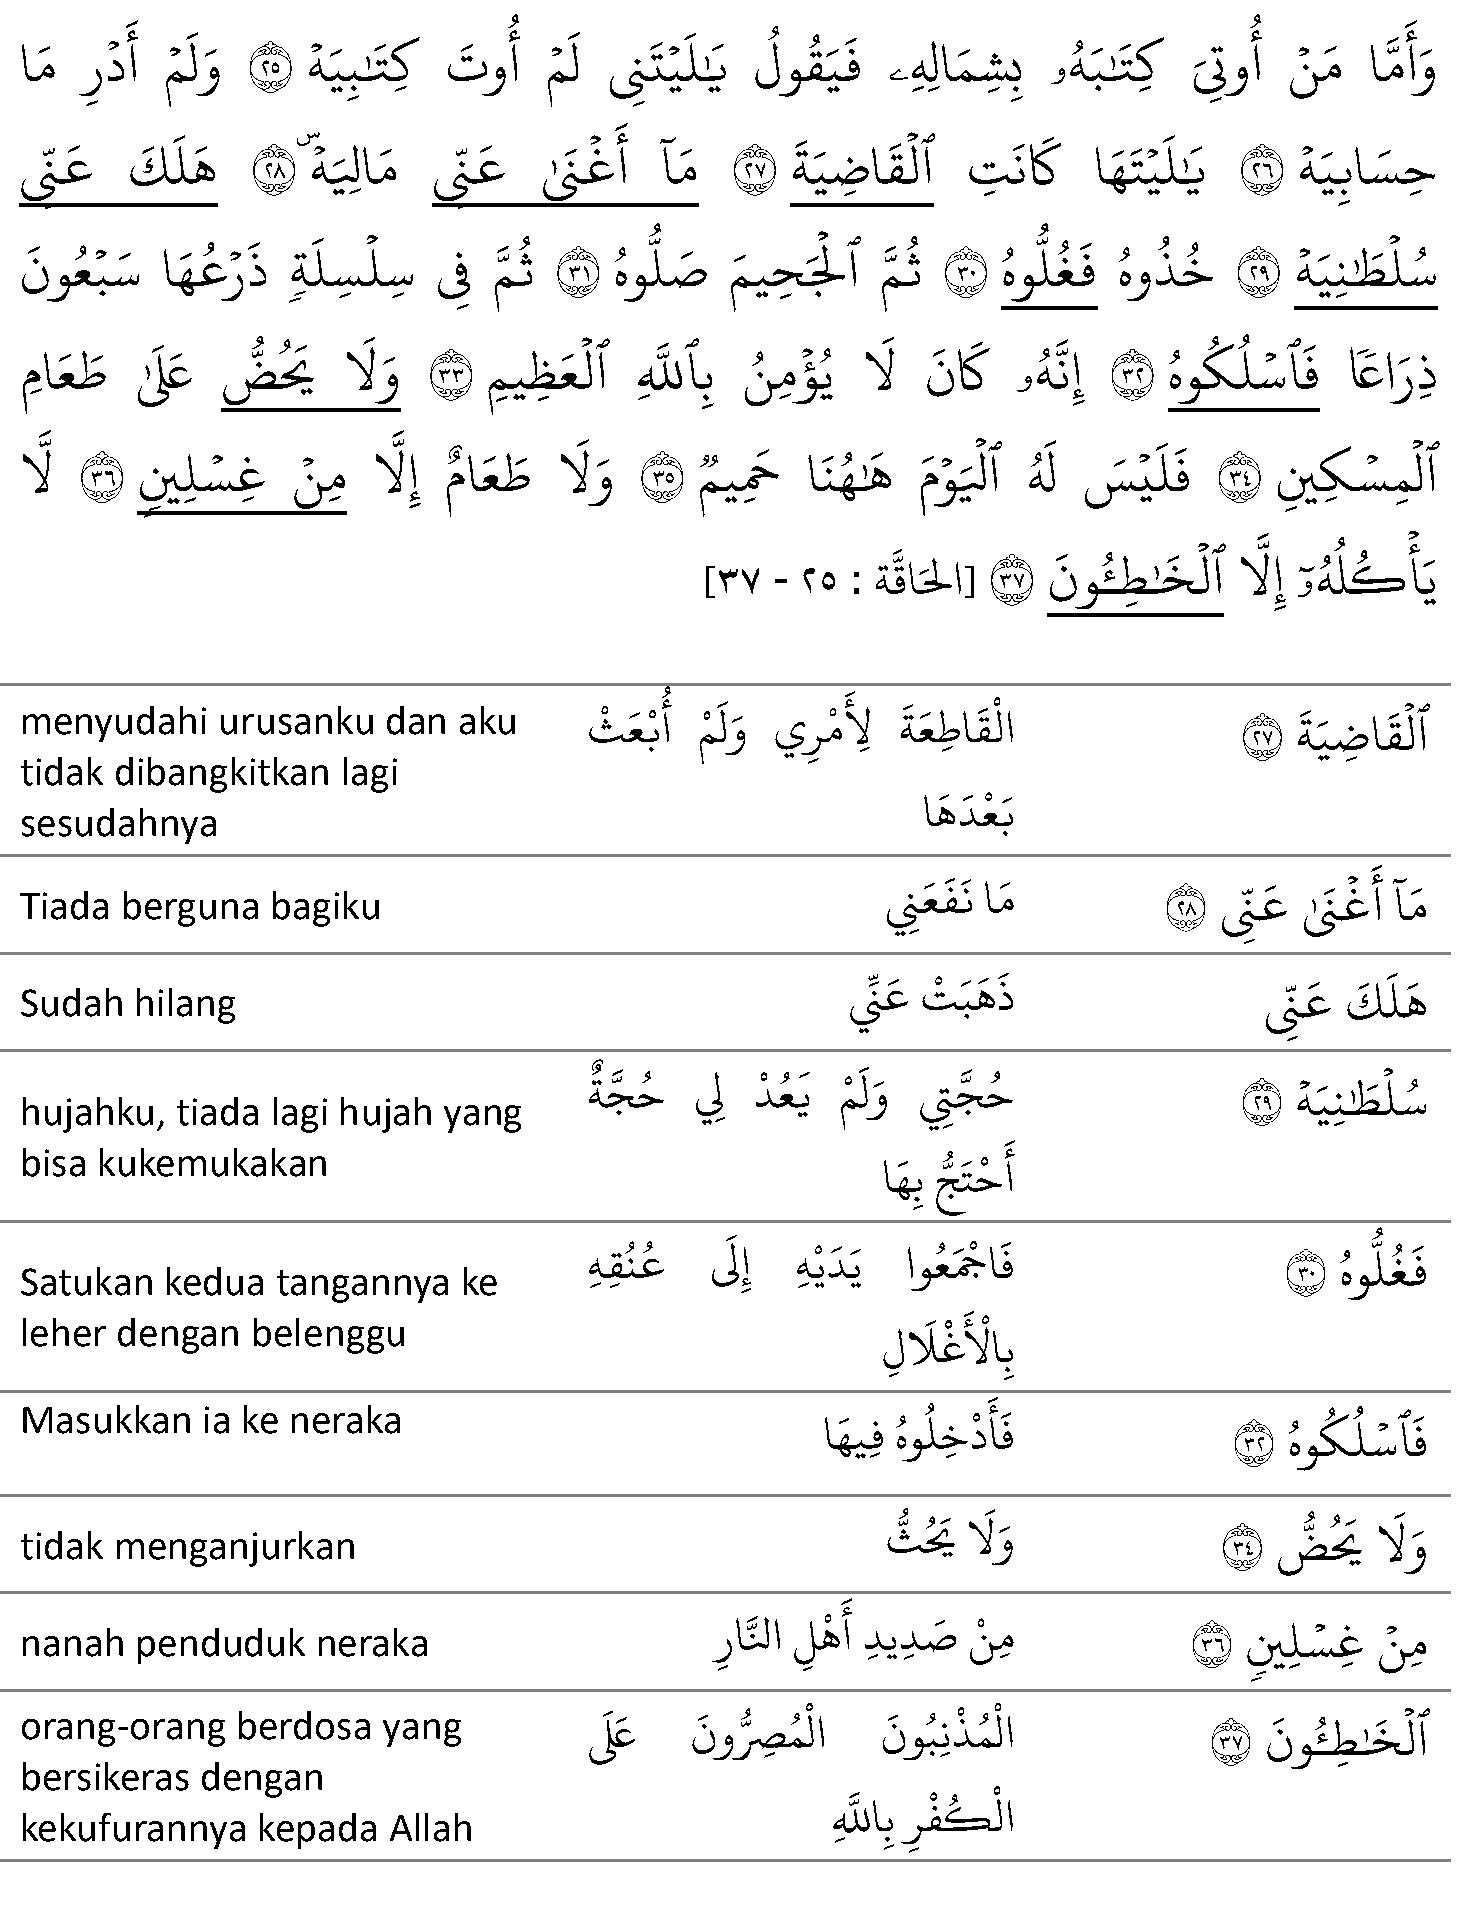 وَأَمَّا مَنۡ أُوتِيَ كِتَٰبَهُۥ بِشِمَالِهِۦ فَيَقُولُ يَٰلَيۡتَنِي لَمۡ أُوتَ كِتَٰبِيَهۡ ٢٥ وَلَمۡ أَدۡرِ مَا
حِسَابِيَهۡ ٢٦ يَٰلَيۡتَهَا كَانَتِ ٱلۡقَاضِيَةَ ٢٧ مَآ أَغۡنَىٰ عَنِّي مَالِيَهۡۜ ٢٨ هَلَكَ عَنِّي
سُلۡطَٰنِيَهۡ ٢٩ خُذُوهُ فَغُلُّوهُ ٣٠ ثُمَّ ٱلۡجَحِيمَ صَلُّوهُ ٣١ ثُمَّ فِي سِلۡسِلَةٖ ذَرۡعُهَا سَبۡعُونَ
ذِرَاعٗا فَٱسۡلُكُوهُ ٣٢ إِنَّهُۥ كَانَ لَا يُؤۡمِنُ بِٱللَّهِ ٱلۡعَظِيمِ ٣٣ وَلَا يَحُضُّ عَلَىٰ طَعَامِ
ٱلۡمِسۡكِينِ ٣٤ فَلَيۡسَ لَهُ ٱلۡيَوۡمَ هَٰهُنَا حَمِيمٞ ٣٥ وَلَا طَعَامٌ إِلَّا مِنۡ غِسۡلِينٖ ٣٦ لَّا
يَأۡكُلُهُۥٓ إِلَّا ٱلۡخَٰطِـُٔونَ ٣٧ [الحَاقَّة : ٢٥ - ٣٧]
ٱلۡقَاضِيَةَ ٢٧ الْقَاطِعَةَ لِأَمْرِي وَلَمْ أُبْعَثْ
بَعْدَهَا
menyudahi urusanku dan aku
tidak dibangkitkan lagi
sesudahnya
مَآ أَغۡنَىٰ عَنِّي ٢٨ مَا نَفَعَنِي
Tiada berguna bagiku
هَلَكَ عَنِّي ذَهَبَتْ عَنِّي
Sudah hilang
سُلۡطَٰنِيَهۡ ٢٩ حُجَّتِي وَلَمْ يَعُدْ لِي حُجَّةٌ
أَحْتَجُّ بِهَا
hujahku, tiada lagi hujah yang
bisa kukemukakan
فَغُلُّوهُ ٣٠ فَاجْمَعُوا يَدَيْهِ إِلَى عُنُقِهِ
بِالْأَغْلَالِ
Satukan kedua tangannya ke
leher dengan belenggu
فَٱسۡلُكُوهُ ٣٢ فَأَدْخِلُوهُ فِيهَا
Masukkan ia ke neraka
وَلَا يَحُضُّ ٣٤ وَلَا يَحُثُّ
tidak menganjurkan
مِنۡ غِسۡلِينٖ ٣٦ مِنْ صَدِيدِ أَهْلِ النَّارِ
nanah penduduk neraka
ٱلۡخَٰطِـُٔونَ ٣٧ الْمُذْنِبُونَ الْمُصِرُّونَ عَلَى
الْكُفْرِ بِاللَّهِ
orang-orang berdosa yang
bersikeras dengan
kekufurannya kepada Allah